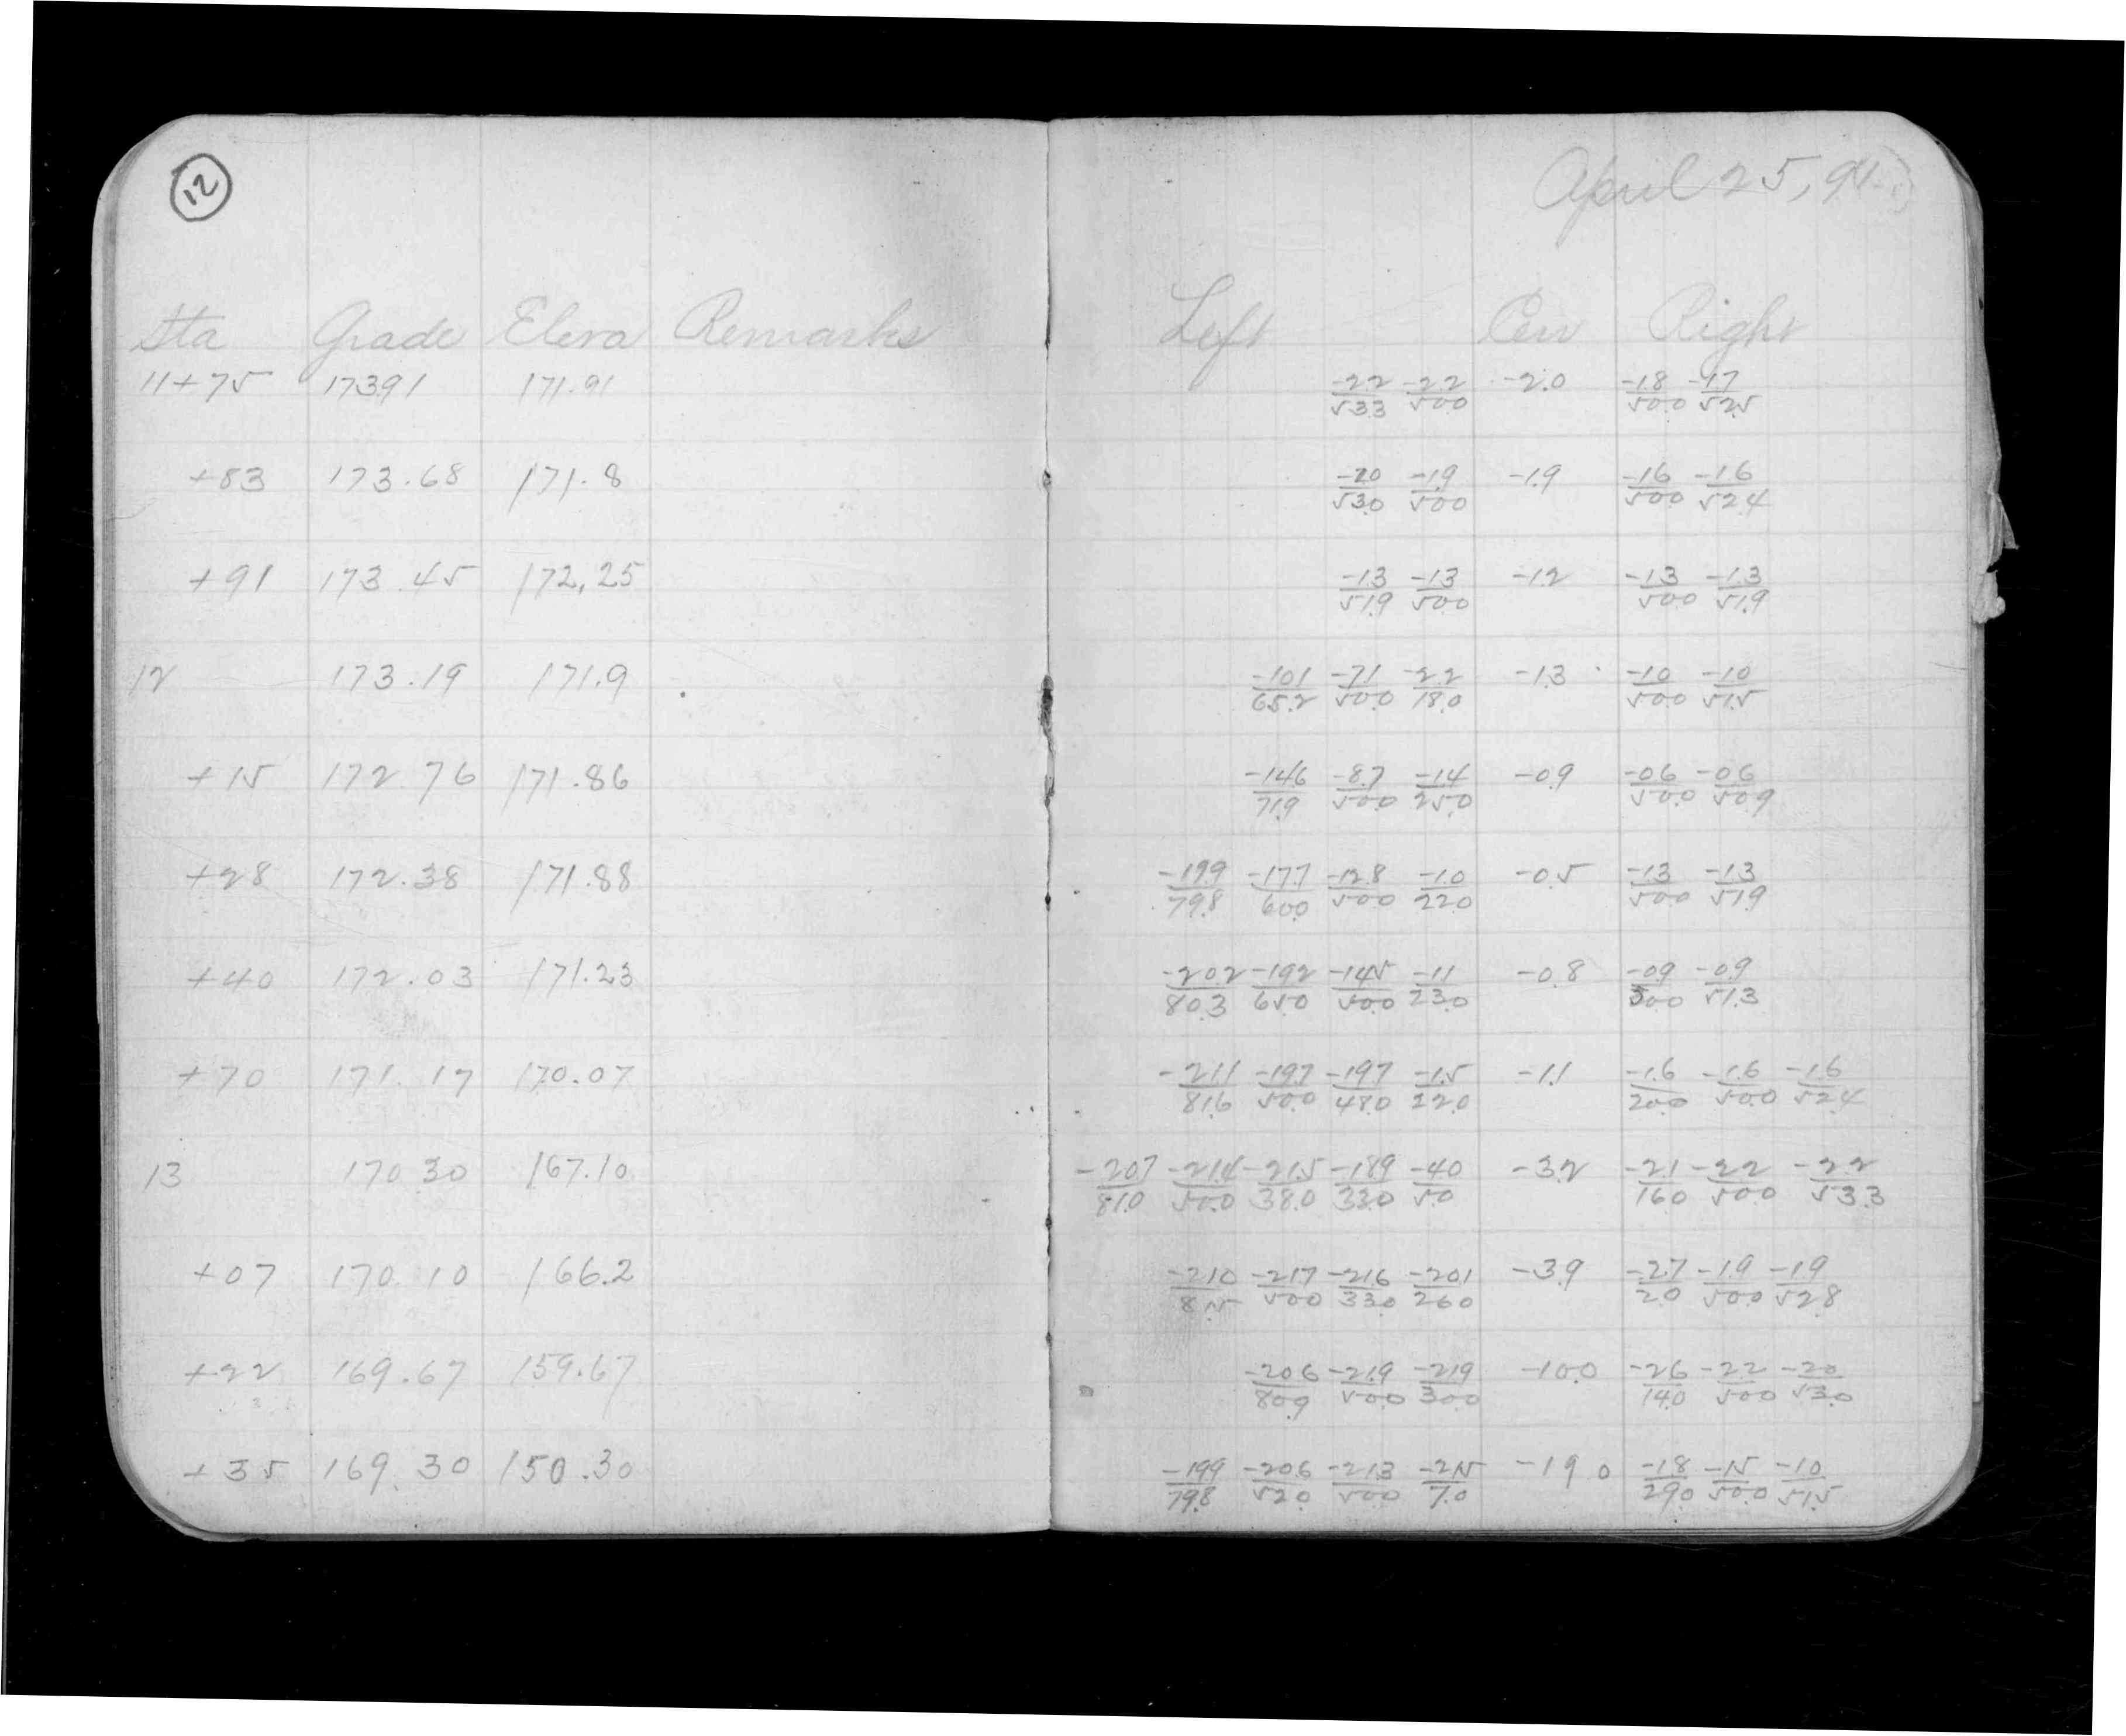 12
April 25, 94
Sta Grade Eleva Remarks Left Cen Right
11+75 173.91 171.91 -2.2/53.3 -2.2/50.0 -2.0 -1.8/50.0 -1.7/52.5
+83 173.68 171.8 -2.0/53.0 -1.9/50.0 -1.9 -1.6/50.0 -1.6/52.4
+91 173.45 172.25 -1.3/51.9 -1.3/50.0 -1.2 -1.3/50.0 -1.3/51.9
12 173.19 171.9 -10.1/65.2 -7.1/50.0 -2.2/18.0 -1.3 -1.0/50.0 -1.0/51.5
+15 172.76 171.86 -14.6/71.9 -8.7/50.0 -1.4/25.0 -0.9 -0.6/50.0 -0.6/50.9
+28 172.38 171.88 -19.9/79.8 -17.7/60.0 -12.8/50.0 -1.0/22.0 -0.5 -1.3/50.0 -1.3/51.9
+40 172.03 171.23 -20.2/80.3 -19.2/65.0 -14.5/50.0 -1.1/23.0 -0.8 -0.9/50.0 -0.9/51.3
+70 171.17 170.07 -21.1/81.6 -19.7/50.0 -19.7/48.0 -1.5/22.0 -1.1 -1.6/20.0 -1.6/50.0 -1.6/52.4
13 170.30 167.10 -20.7/81.0 -21.4/50.0 -21.5/38.0 -18.9/33.0 -4.0/5.0 -3.2 -2.1/16.0 -2.2/50.0 -2.2/53.3
+07 170.10 166.2 -21.0/81.5 -21.7/50.0 -21.6/33.0 -20.1/26.0 -3.9 -2.7/2.0 -1.9/50.0 -1.9/52.8
+22 169.67 159.67 -20.6/80.9 -21.9/50.0 -21.9/30.0 -10.0 -2.6/14.0 -2.2/50.0 -2.0/53.0
+35 169.30 150.30 -19.9/79.8 -20.6/52.0 -21.3/50.0 -21.5/7.0 -19.0 -1.8/29.0 -1.5/50.0 -1.0/51.5